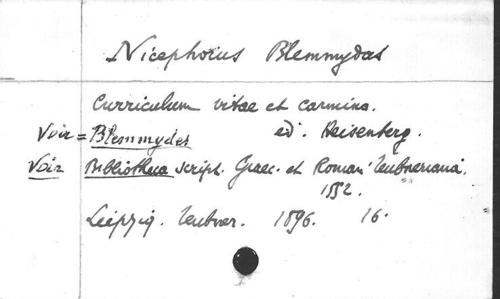 Nicephorus Blemmydas
Curriculum vitae et carmina.
Voir = Blemmydes ed. Heisenberg.
Voir Bibliotheca script. Graec. et Roman. Teubneriana.
1552.
Leipzig. Teubner. 1896. 16.